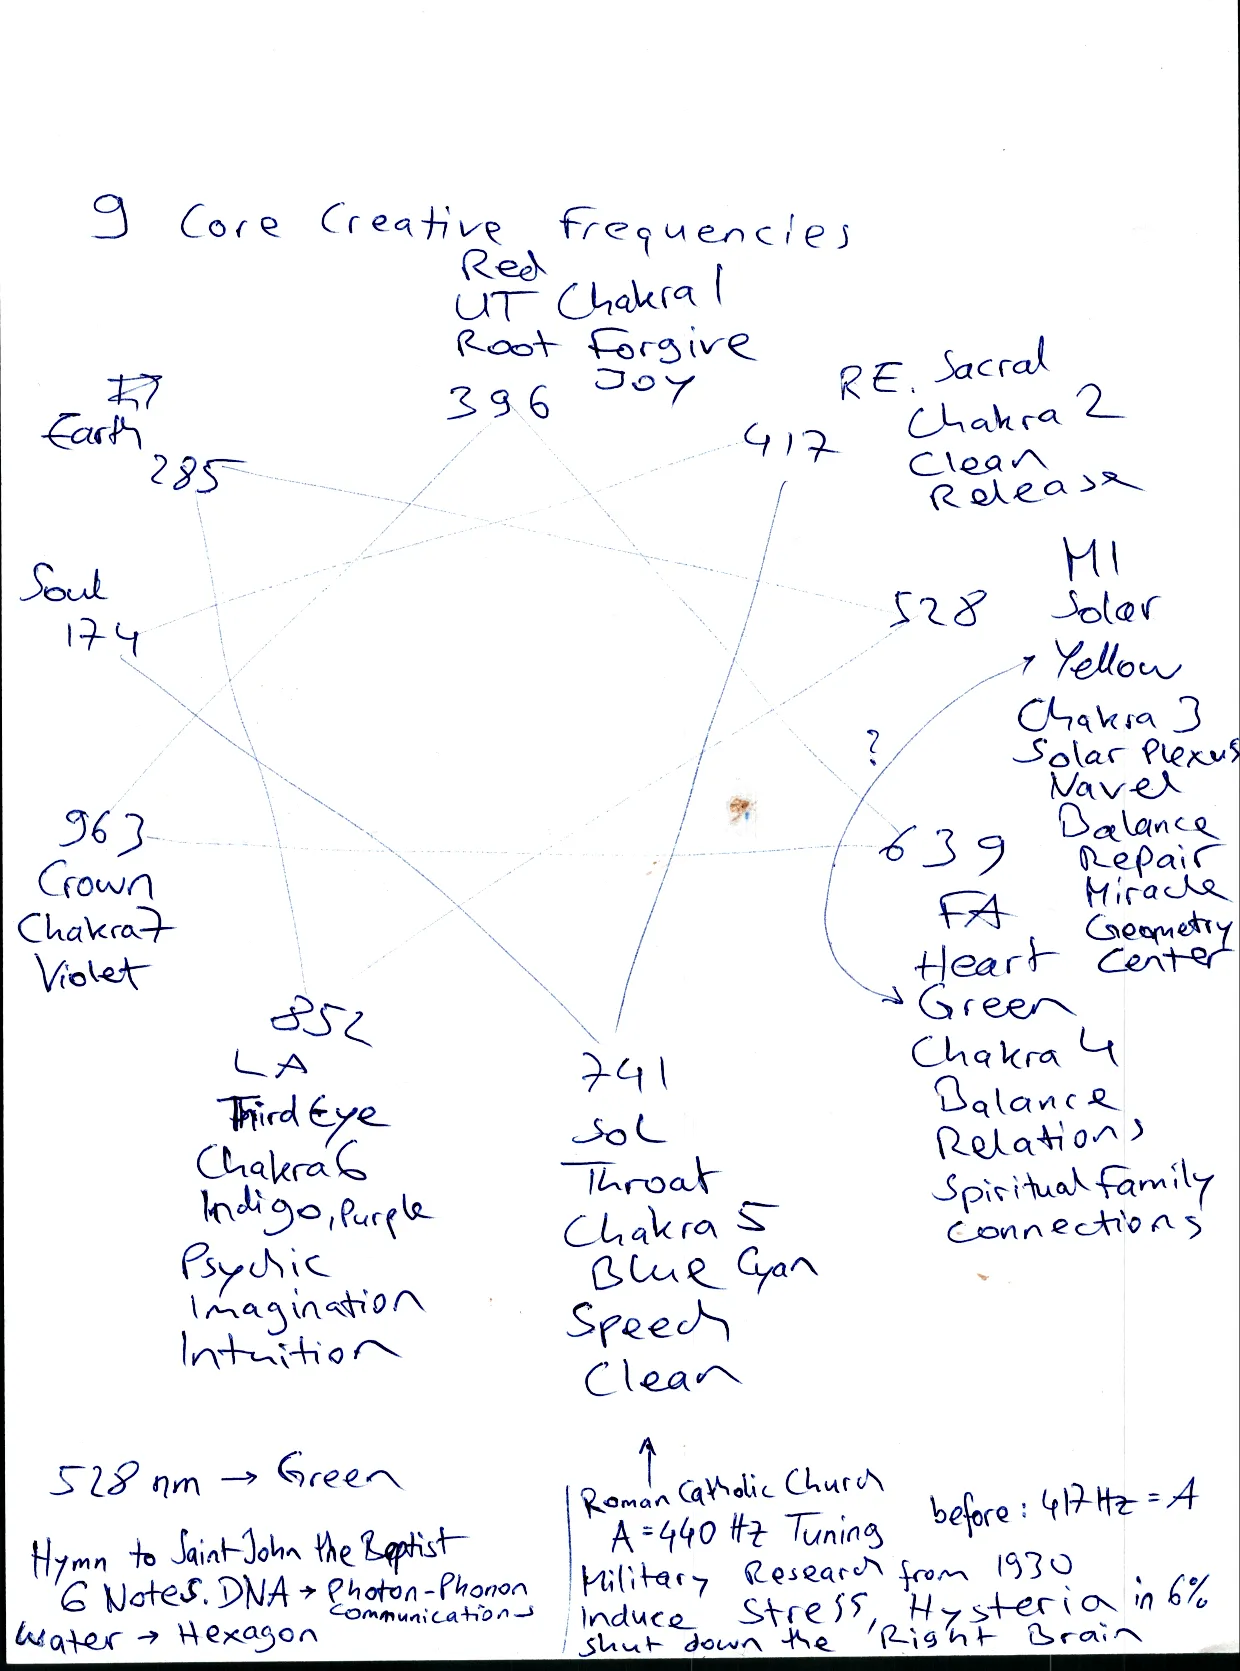 9 Core Creative Frequencies
Red
UT Chakra 1
Root Forgive
Joy
396
Earth
285
RE. Sacral
Chakra 2
Clean
Release
417
Soul
174
528
MI
Solar
Yellow
Chakra 3
Solar Plexus
Navel
Balance
Repair
Miracle
Geometry
Center
?
963
Crown
Chakra 7
Violet
639
FA
Heart
Green
Chakra 4
Balance
Relations
Spiritual Family
Connections
852
LA
Third Eye
Chakra 6
Indigo, Purple
Psychic
Imagination
Intuition
741
Sol
Throat
Chakra 5
Blue Cyan
Speech
Clean
528 nm → Green
Hymn to Saint John the Baptist
6 Notes. DNA → Photon-Phonon
Communications
Water → Hexagon
Roman Catholic Church
A = 440 Hz Tuning
before: 417 Hz = A
Military Research from 1930
Induce Stress, Hysteria in 6%
shut down the 'Right Brain